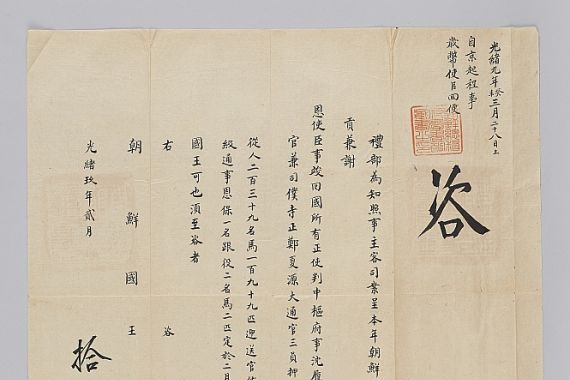 光緒元年癸未三月二十八日
自京起程事
歲幣使臣回便
咨
禮部為知照事主客司案呈本年朝鮮
貢兼謝
恩使臣事竣回國所有正使判中樞府事沈履
官兼司僕寺正鄭夏源大通官三員押
從人二百三十九名馬一百九十九匹迎送官
級通事恩保一名跟役二名馬二匹定於二月
國王可也須至咨者
右咨
朝鮮國王
光緒玖年貳月
拾